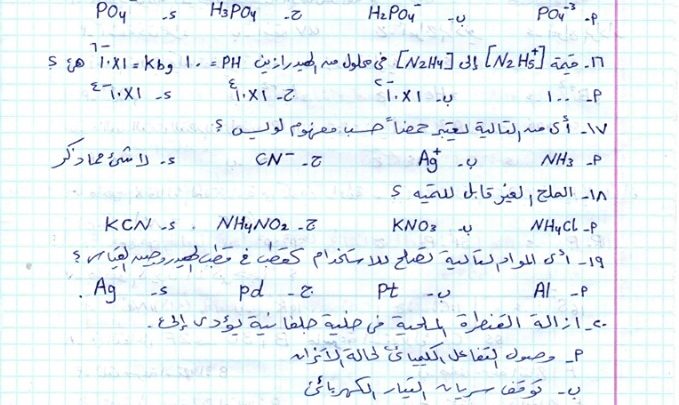 م- PO₄⁻³   ب- H₂PO₄⁻   ج- H₃PO₄   د- PO₄
١٦- قيمة [N₂H₅⁺] إلى [N₂H₄] في محلول من الهيدرازين PH = ١٠ وkb = ١×١٠⁻⁶ هي ؟
م- ١٠٠   ب- ١×١٠⁻²   ج- ١×١٠⁴   د- ١×١٠⁻⁴
١٧- أي من التالية يعتبر حمضاً حسب مفهوم لويس ؟
م- NH₃   ب- Ag⁺   ج- CN⁻   د- لا شئ مما ذكر
١٨- الملح الغير قابل للتميه ؟
م- NH₄Cl   ب- KNO₃   ج- NH₄NO₂   د- KCN
١٩- أي المواد التالية تصلح للاستخدام كقطب في قطب الهيدروجين القياسي ؟
م- Al   ب- Pt   ج- pd   د- Ag.
٢٠- ازالة القنطرة الملحية في خلية جلفانية يؤدي إلى.
م- وصول التفاعل الكيميائي لحالة الاتزان
ب- توقف سريان التيار الكهربائي